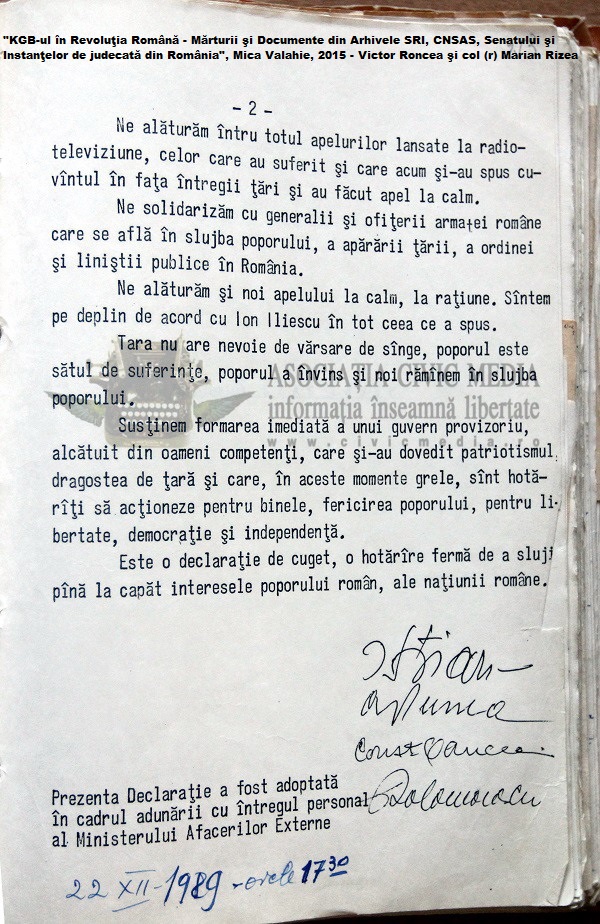 "KGB-ul în Revoluţia Română - Mărturii şi Documente din Arhivele SRI, CNSAS, Senatului şi
Instanţelor de judecată din România", Mica Valahie, 2015 - Victor Roncea şi col (r) Marian Rizea
- 2 -
Ne alăturăm întru totul apelurilor lansate la radio-
televiziune, celor care au suferit şi care acum şi-au spus cu-
vîntul în faţa întregii ţări şi au făcut apel la calm.
Ne solidarizăm cu generalii şi ofiţerii armatei române
care se află în slujba poporului, a apărării ţării, a ordinei
şi liniştii publice în România.
Ne alăturăm şi noi apelului la calm, la raţiune. Sîntem
pe deplin de acord cu Ion Iliescu în tot ceea ce a spus.
Tara nu are nevoie de vărsare de sînge, poporul este
sătul de suferinţe, poporul a învins şi noi rămînem în slujba
poporului.
ASOCIAŢIA CIVIC MEDIA
informaţia înseamnă libertate
www.civicmedia.ro
Susţinem formarea imediată a unui guvern provizoriu,
alcătuit din oameni competenţi, care şi-au dovedit patriotismul,
dragostea de ţară şi care, în aceste momente grele, sînt hotă-
rîţi să acţioneze pentru binele, fericirea poporului, pentru li-
bertate, democraţie şi independenţă.
Este o declaraţie de cuget, o hotărîre fermă de a sluji
pînă la capăt interesele poporului român, ale naţiunii române.
Const Oancea
Prezenta Declaraţie a fost adoptată
în cadrul adunării cu întregul personal
al Ministerului Afacerilor Externe
22 XII-1989 - orele 17³⁰